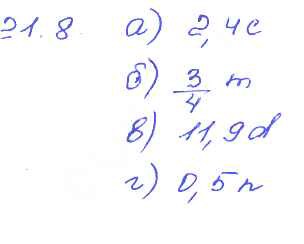 21.8. а) 2,4c
б) 3/4 m
в) 11,9d
г) 0,5n